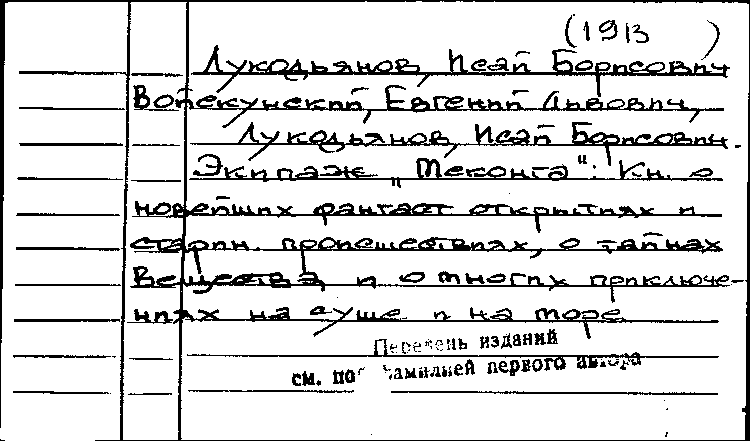 (1913 )
Лукодьянов, Исай Борисович
Войскунский, Евгений Львович,
Лукодьянов, Исай Борисович.
Экипаж „Меконга": Кн. о
новейших фантаст открытиях и
старин. происшествиях, о тайнах
Вещества и о многих приключе-
ниях на суше и на море
Перечень изданий
см. под фамилией первого автора